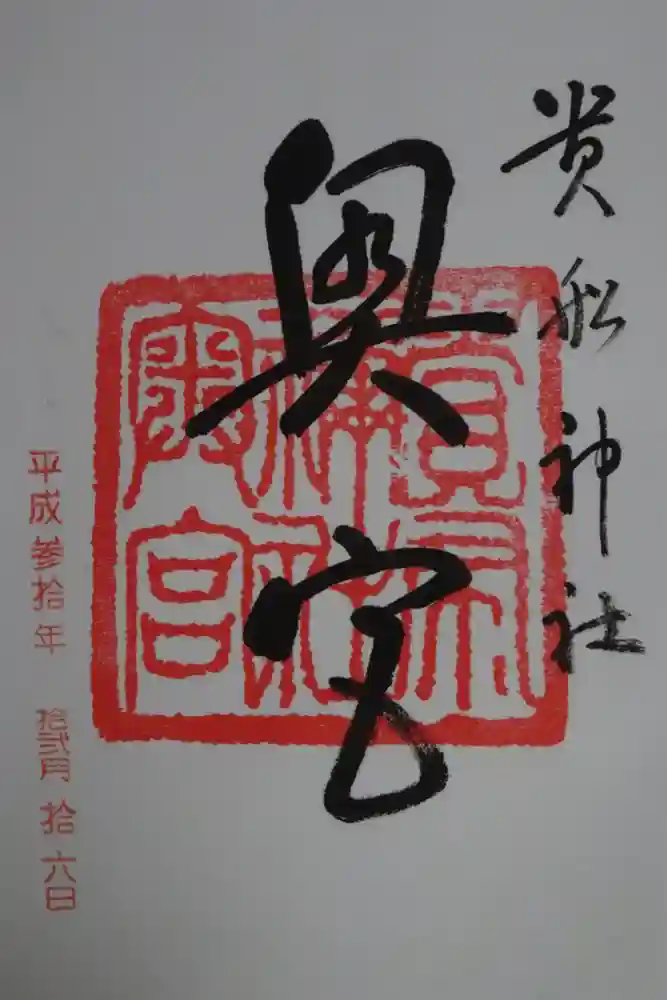 貴船神社
奥宮
貴船神社奥宮
平成参拾年 拾弐月 拾六日